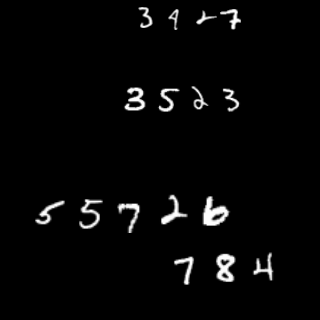 3427
3523
55726
784